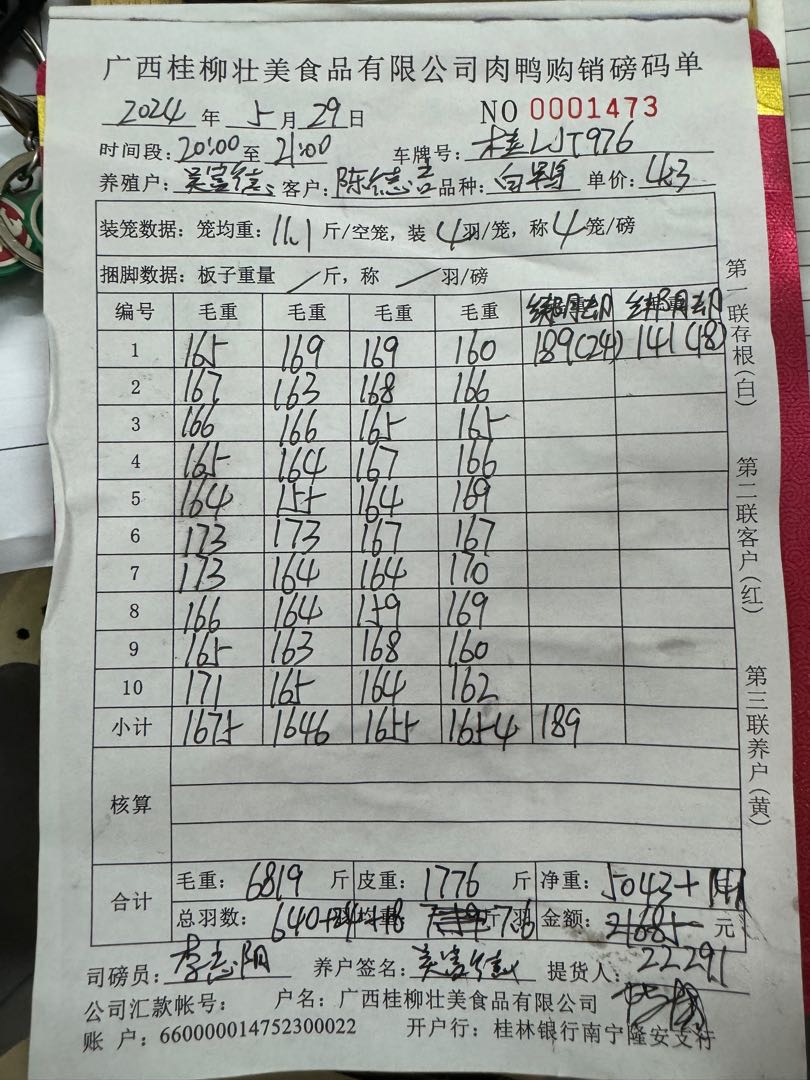 广西桂柳壮美食品有限公司肉鸭购销磅码单
2024 年 5 月 29 日 NO 0001473
时间段: 20:00 至 21:00 车牌号: 桂LJT976
养殖户: 吴富德 客户: 陈德吉 品种: 白鸭 单价: 4.3
装笼数据: 笼均重: 11.1 斤/空笼, 装 4 羽/笼, 称 4 笼/磅
捆脚数据: 板子重量 / 斤, 称 / 羽/磅
编号 毛重 毛重 毛重 毛重
1 165 169 169 160 189(24) 141(18)
2 167 163 168 166
3 166 166 165 165
4 165 164 167 166
5 164 155 164 169
6 173 173 167 167
7 173 164 164 170
8 166 164 159 169
9 165 163 168 160
10 171 165 164 162
小计 1675 1646 1655 1654 189
核算
合计 毛重: 6819 斤 皮重: 1776 斤 净重: 5043+141
总羽数: 640+24+18 7.56 金额: 21685 元
司磅员: 李志阳 养户签名: 吴富德 提货人: 22291
公司汇款帐号: 户名: 广西桂柳壮美食品有限公司
账 户: 660000014752300022 开户行: 桂林银行南宁隆安支行
第一联存根(白)
第二联客户(红)
第三联养户(黄)